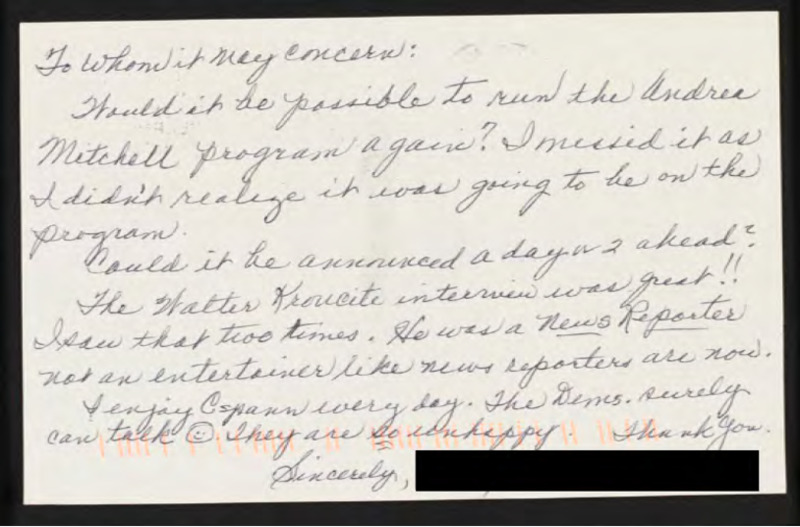 To Whom it May Concern:
Would it be possible to run the Andrea
Mitchell program again? I missed it as
I didn't realize it was going to be on the
program.
Could it be announced a day or 2 ahead?
The Walter Kroucite interview was great!!
I saw that two times. He was a News Reporter
not an entertainer like news reporters are now.
I enjoy Cspann every day. The Dems. surely
can talk ☺ They are so unhappy. Thank you.
Sincerely,